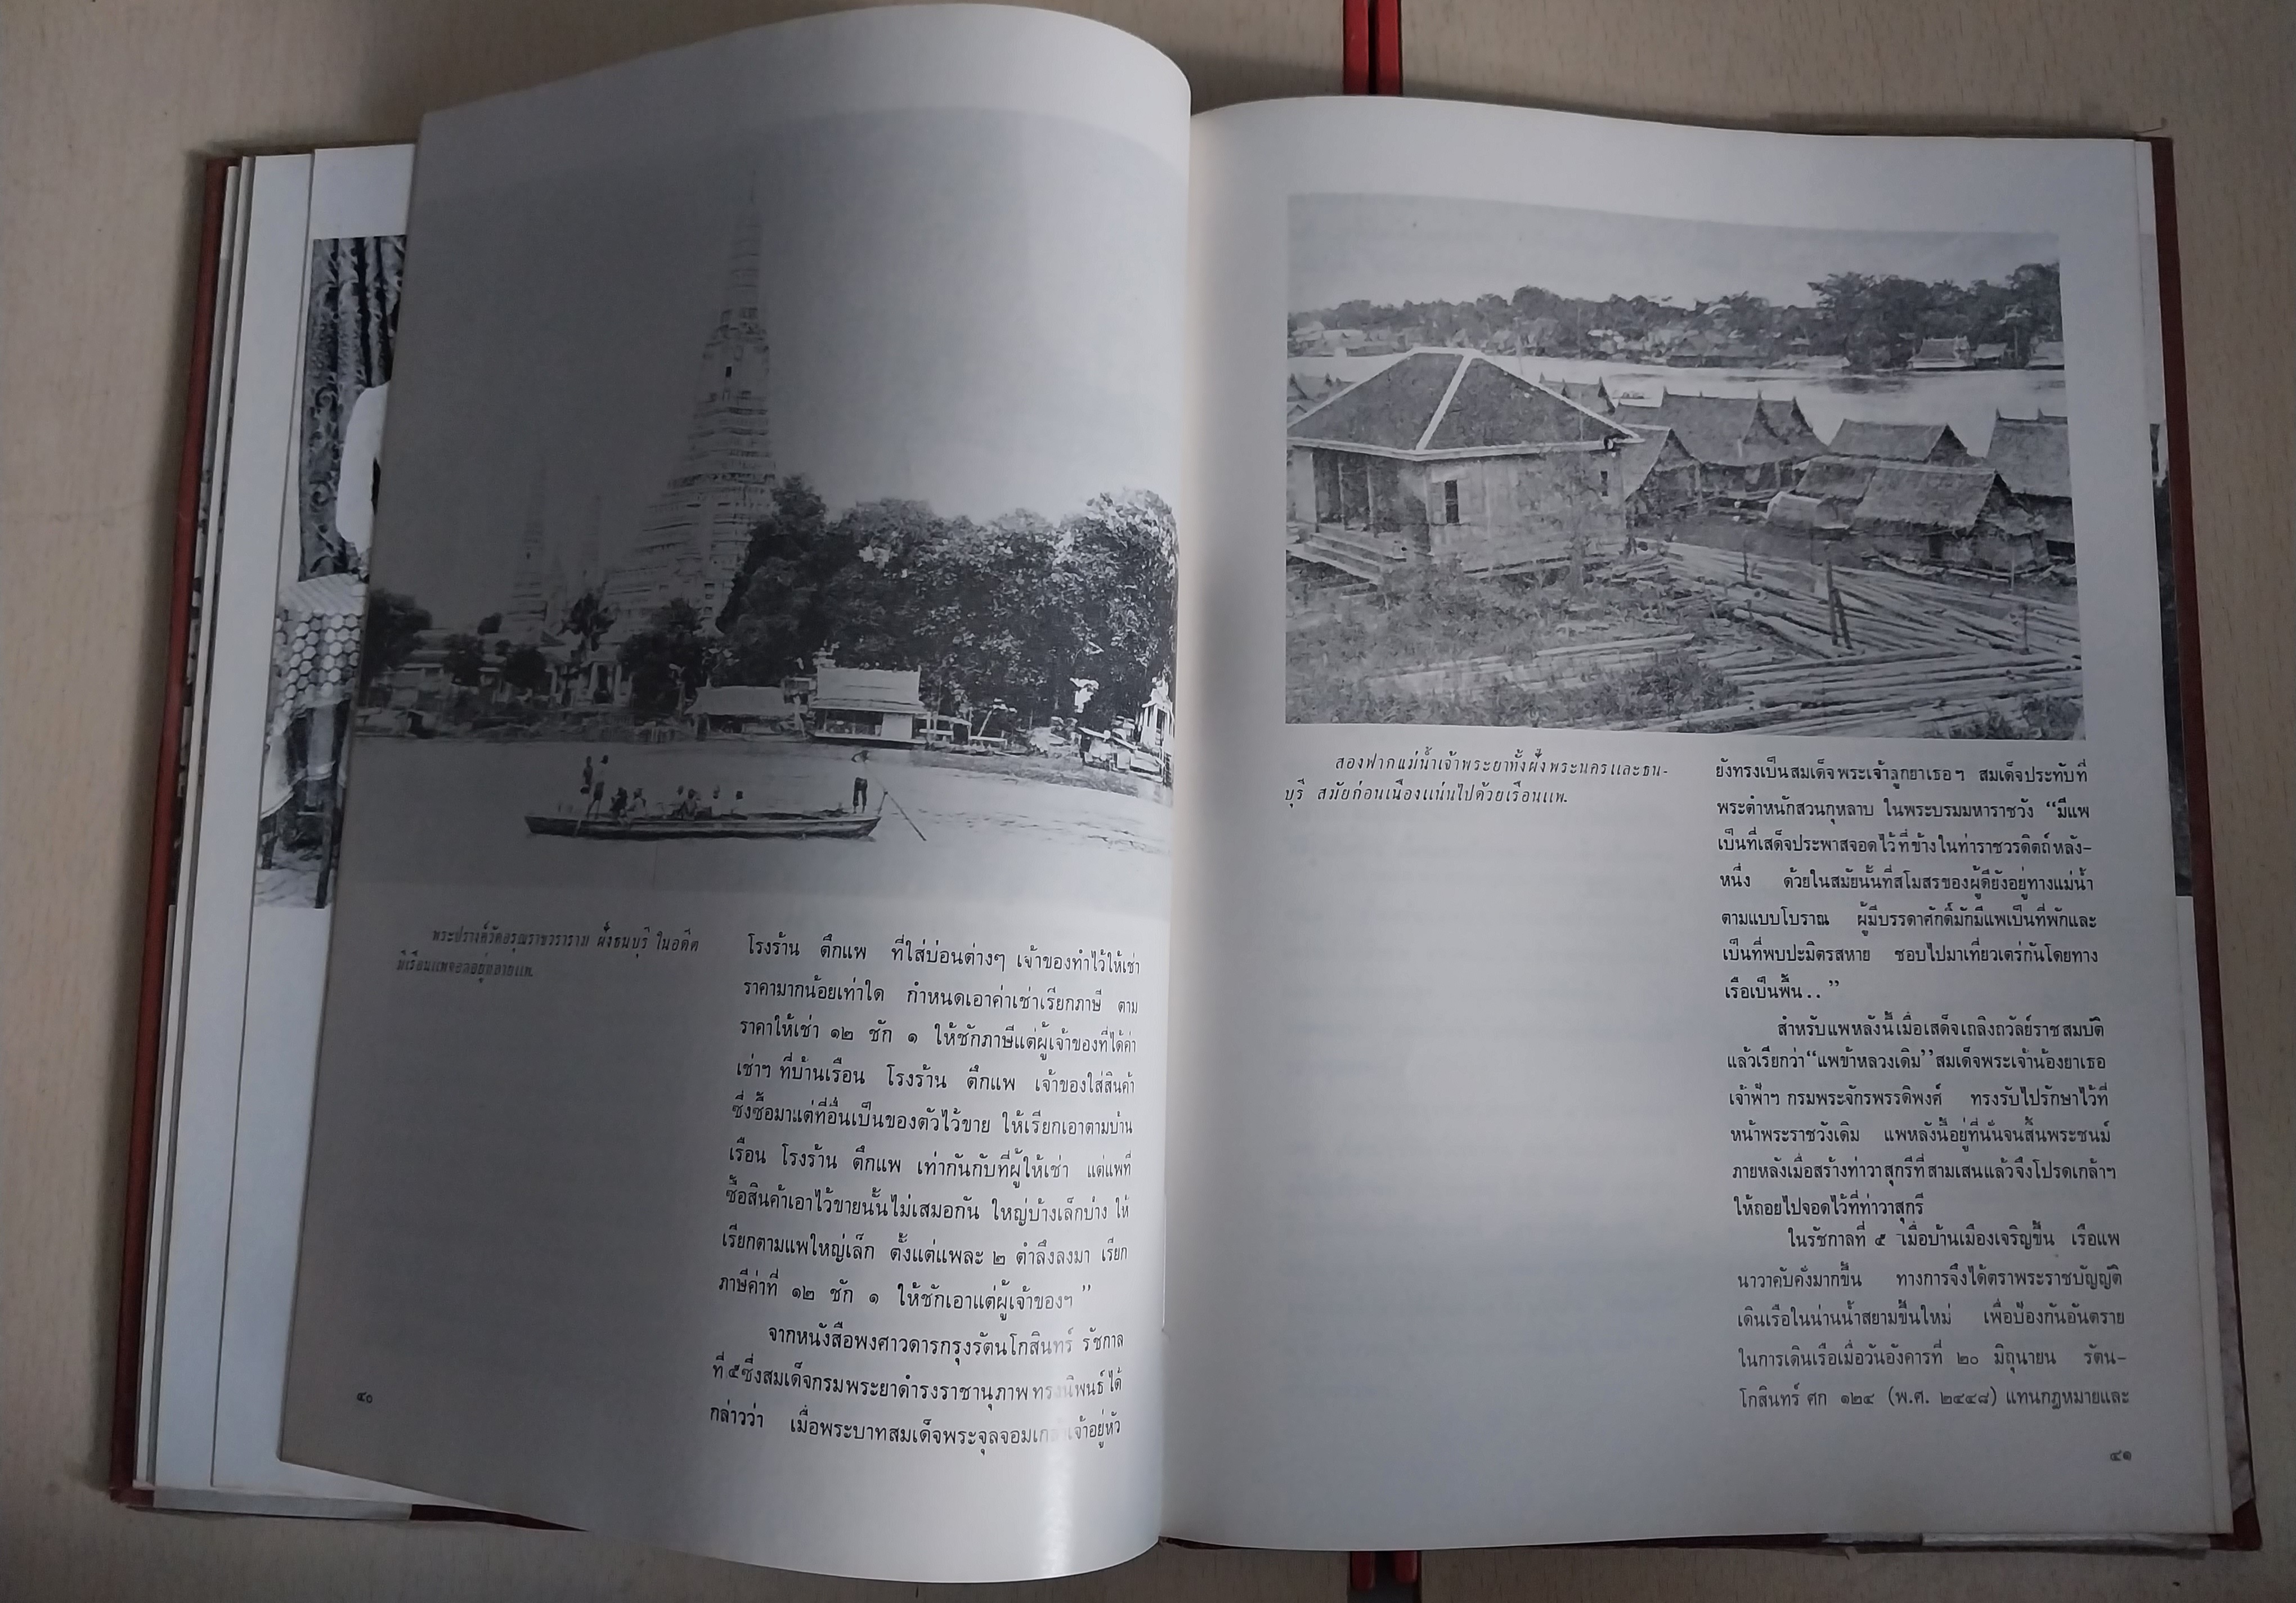 พระปรางค์วัดอรุณราชวราราม ฝั่งธนบุรี ในอดีต
มีเรือนแพจอดอยู่หลายแพ.
โรงร้าน ตึกแพ ที่ใส่บ่อนต่างๆ เจ้าของทำไว้ให้เช่า
ราคามากน้อยเท่าใด กำหนดเอาค่าเช่าเรียกภาษี ตาม
ราคาให้เช่า ๑๒ ชัก ๑ ให้ชักภาษีแต่ผู้เจ้าของที่ได้ค่า
เช่าฯ ที่บ้านเรือน โรงร้าน ตึกแพ เจ้าของใส่สินค้า
ซึ่งซื้อมาแต่ที่อื่นเป็นของตัวไว้ขาย ให้เรียกเอาตามบ้าน
เรือน โรงร้าน ตึกแพ เท่ากันกับที่ผู้ให้เช่า แต่แพที่
ซื้อสินค้าเอาไว้ขายนั้นไม่เสมอกัน ใหญ่บ้างเล็กบ่าง ให้
เรียกตามแพใหญ่เล็ก ตั้งแต่แพละ ๒ ตำลึงลงมา เรียก
ภาษีค่าที่ ๑๒ ชัก ๑ ให้ชักเอาแต่ผู้เจ้าของฯ ”
จากหนังสือพงศาวดารกรุงรัตนโกสินทร์ รัชกาล
ที่ ๕ซึ่งสมเด็จกรมพระยาดำรงราชานุภาพ ทรงนิพนธ์ ได้
กล่าวว่า เมื่อพระบาทสมเด็จพระจุลจอมเกล้าเจ้าอยู่หัว
๔๐
สองฟากแม่น้ำเจ้าพระยาทั้งฝั่งพระนครและธน-
บุรี สมัยก่อนเนืองแน่นไปด้วยเรือนแพ.
ยังทรงเป็นสมเด็จพระเจ้าลูกยาเธอฯ สมเด็จประทับที่
พระตำหนักสวนกุหลาบ ในพระบรมมหาราชวัง “มีแพ
เป็นที่เสด็จประพาสจอดไว้ที่ข้างในท่าราชวรดิตถ์หลัง-
หนึ่ง ด้วยในสมัยนั้นที่สโมสรของผู้ดียังอยู่ทางแม่น้ำ
ตามแบบโบราณ ผู้มีบรรดาศักดิ์มักมีแพเป็นที่พักและ
เป็นที่พบปะมิตรสหาย ชอบไปมาเที่ยวเตร่กันโดยทาง
เรือเป็นพื้น.. ”
สำหรับแพหลังนี้เมื่อเสด็จเถลิงถวัลย์ราชสมบัติ
แล้วเรียกว่า“แพข้าหลวงเดิม”สมเด็จพระเจ้าน้องยาเธอ
เจ้าฟ้าฯ กรมพระจักรพรรดิพงศ์ ทรงรับไปรักษาไว้ที่
หน้าพระราชวังเดิม แพหลังนี้อยู่ที่นั่นจนสิ้นพระชนม์
ภายหลังเมื่อสร้างท่าวาสุกรีที่สามเสนแล้วจึงโปรดเกล้าฯ
ให้ถอยไปจอดไว้ที่ท่าวาสุกรี
ในรัชกาลที่ ๕ เมื่อบ้านเมืองเจริญขึ้น เรือแพ
นาวาคับคั่งมากขึ้น ทางการจึงได้ตราพระราชบัญญัติ
เดินเรือในน่านน้ำสยามขึ้นใหม่ เพื่อป้องกันอันตราย
ในการเดินเรือเมื่อวันอังคารที่ ๒๐ มิถุนายน รัตน-
โกสินทร์ ศก ๑๒๔ (พ.ศ. ๒๔๔๘) แทนกฎหมายและ
๔๑